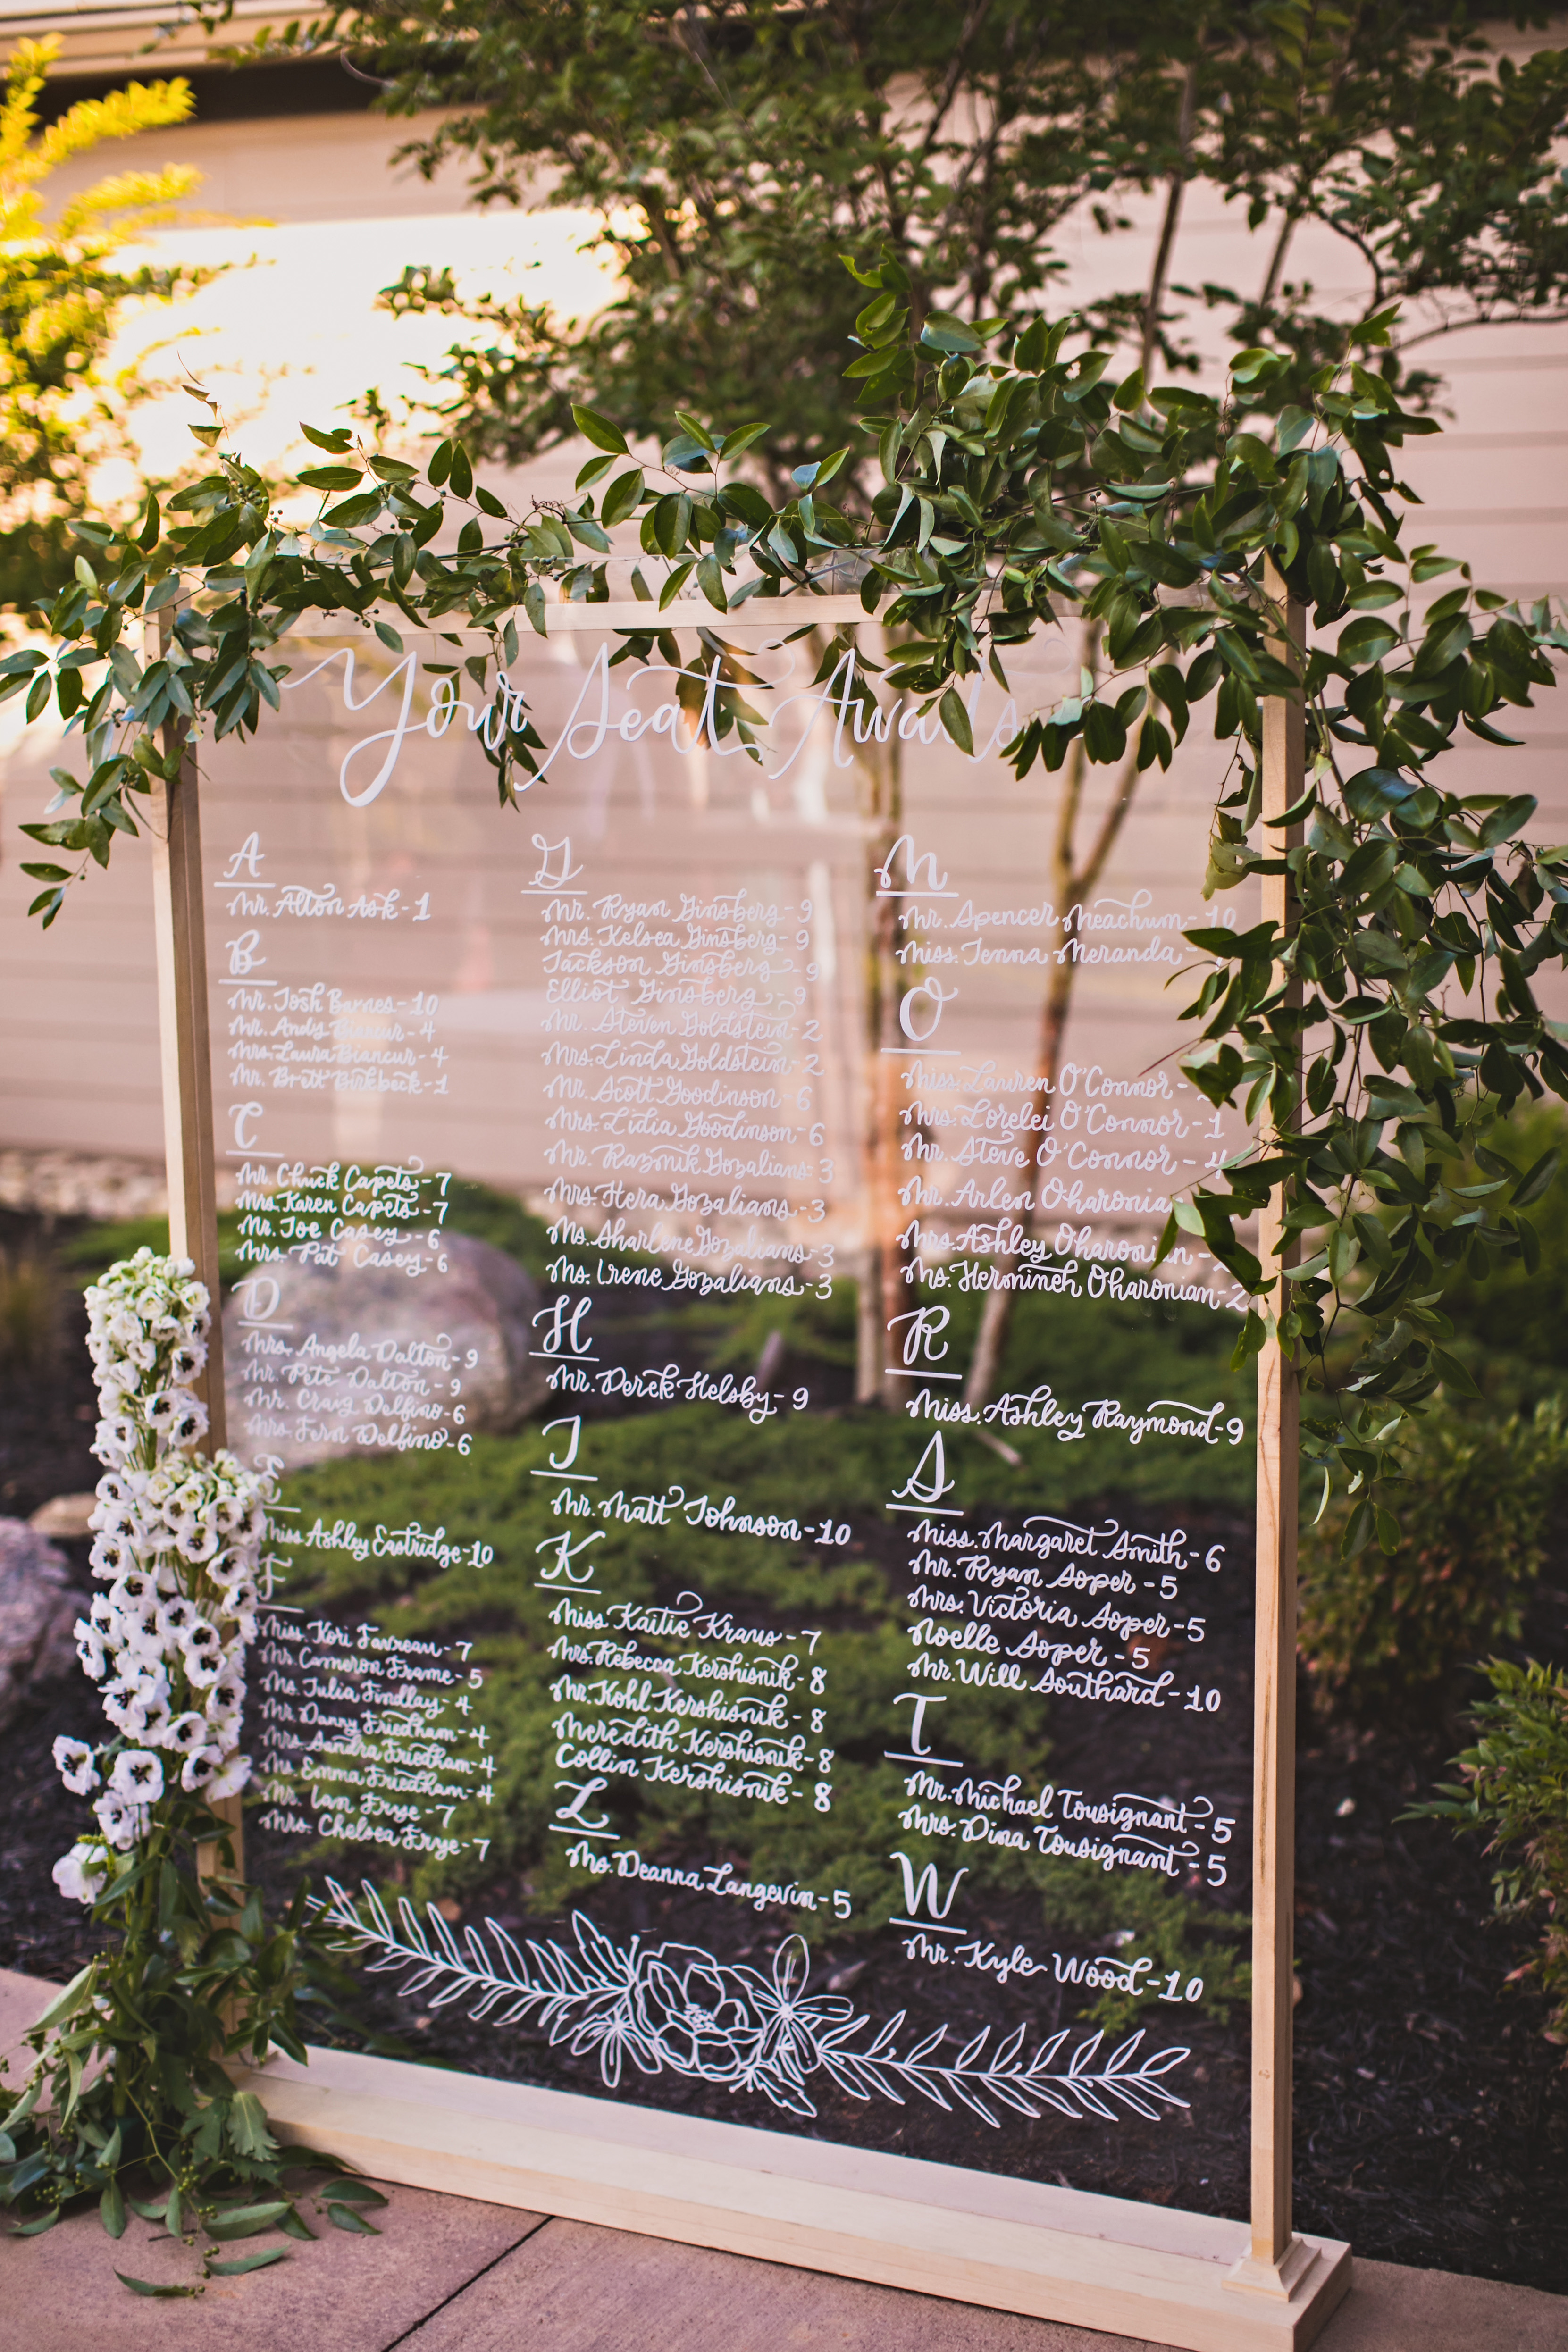 Your Seat Awaits
A
Mr. Alton Ask - 1
B
Mr. Josh Barnes - 10
Mr. Andy Biancur - 4
Mrs. Laura Biancur - 4
Mr. Brett Birkbeck - 1
C
Mr. Chuck Capets - 7
Mrs. Karen Capets - 7
Mr. Joe Casey - 6
Mrs. Pat Casey - 6
D
Mrs. Angela Dalton - 9
Mr. Pete Dalton - 9
Mr. Craig Delfino - 6
Mrs. Fern Delfino - 6
E
Miss Ashley Eastridge - 10
F
Miss. Kori Favreau - 7
Mr. Cameron Frame - 5
Ms. Julia Findlay - 4
Mr. Danny Friedham - 4
Mrs. Sandra Friedham - 4
Ms. Emma Friedham - 4
Mr. Ian Frye - 7
Mrs. Chelsea Frye - 7
G
Mr. Ryan Ginsberg - 9
Mrs. Kelsea Ginsberg - 9
Jackson Ginsberg - 9
Elliot Ginsberg - 9
Mr. Steven Goldstein - 2
Mrs. Linda Goldstein - 2
Mr. Scott Goodinson - 6
Mrs. Lidia Goodinson - 6
Mr. Razmik Gozalians - 3
Mrs. Hera Gozalians - 3
Ms. Sharlene Gozalians - 3
Ms. Irene Gozalians - 3
H
Mr. Derek Helsby - 9
J
Mr. Matt Johnson - 10
K
Miss. Kaitie Kraus - 7
Mrs. Rebecca Kershisnik - 8
Mr. Kohl Kershisnik - 8
Meredith Kershisnik - 8
Collin Kershisnik - 8
L
Ms. Deanna Langevin - 5
M
Mr. Spencer Meachum - 10
Miss. Jenna Meranda -
O
Miss. Lauren O'Connor -
Mrs. Lorelei O'Connor - 1
Mr. Steve O'Connor - 4
Mr. Arlen Oharonian
Mrs. Ashley Oharonian -
Ms. Hermineh Oharonian - 2
R
Miss. Ashley Raymond - 9
S
Miss. Margaret Smith - 6
Mr. Ryan Soper - 5
Mrs. Victoria Soper - 5
Noelle Soper - 5
Mr. Will Southard - 10
T
Mr. Michael Tousignant - 5
Mrs. Dina Tousignant - 5
W
Mr. Kyle Wood - 10